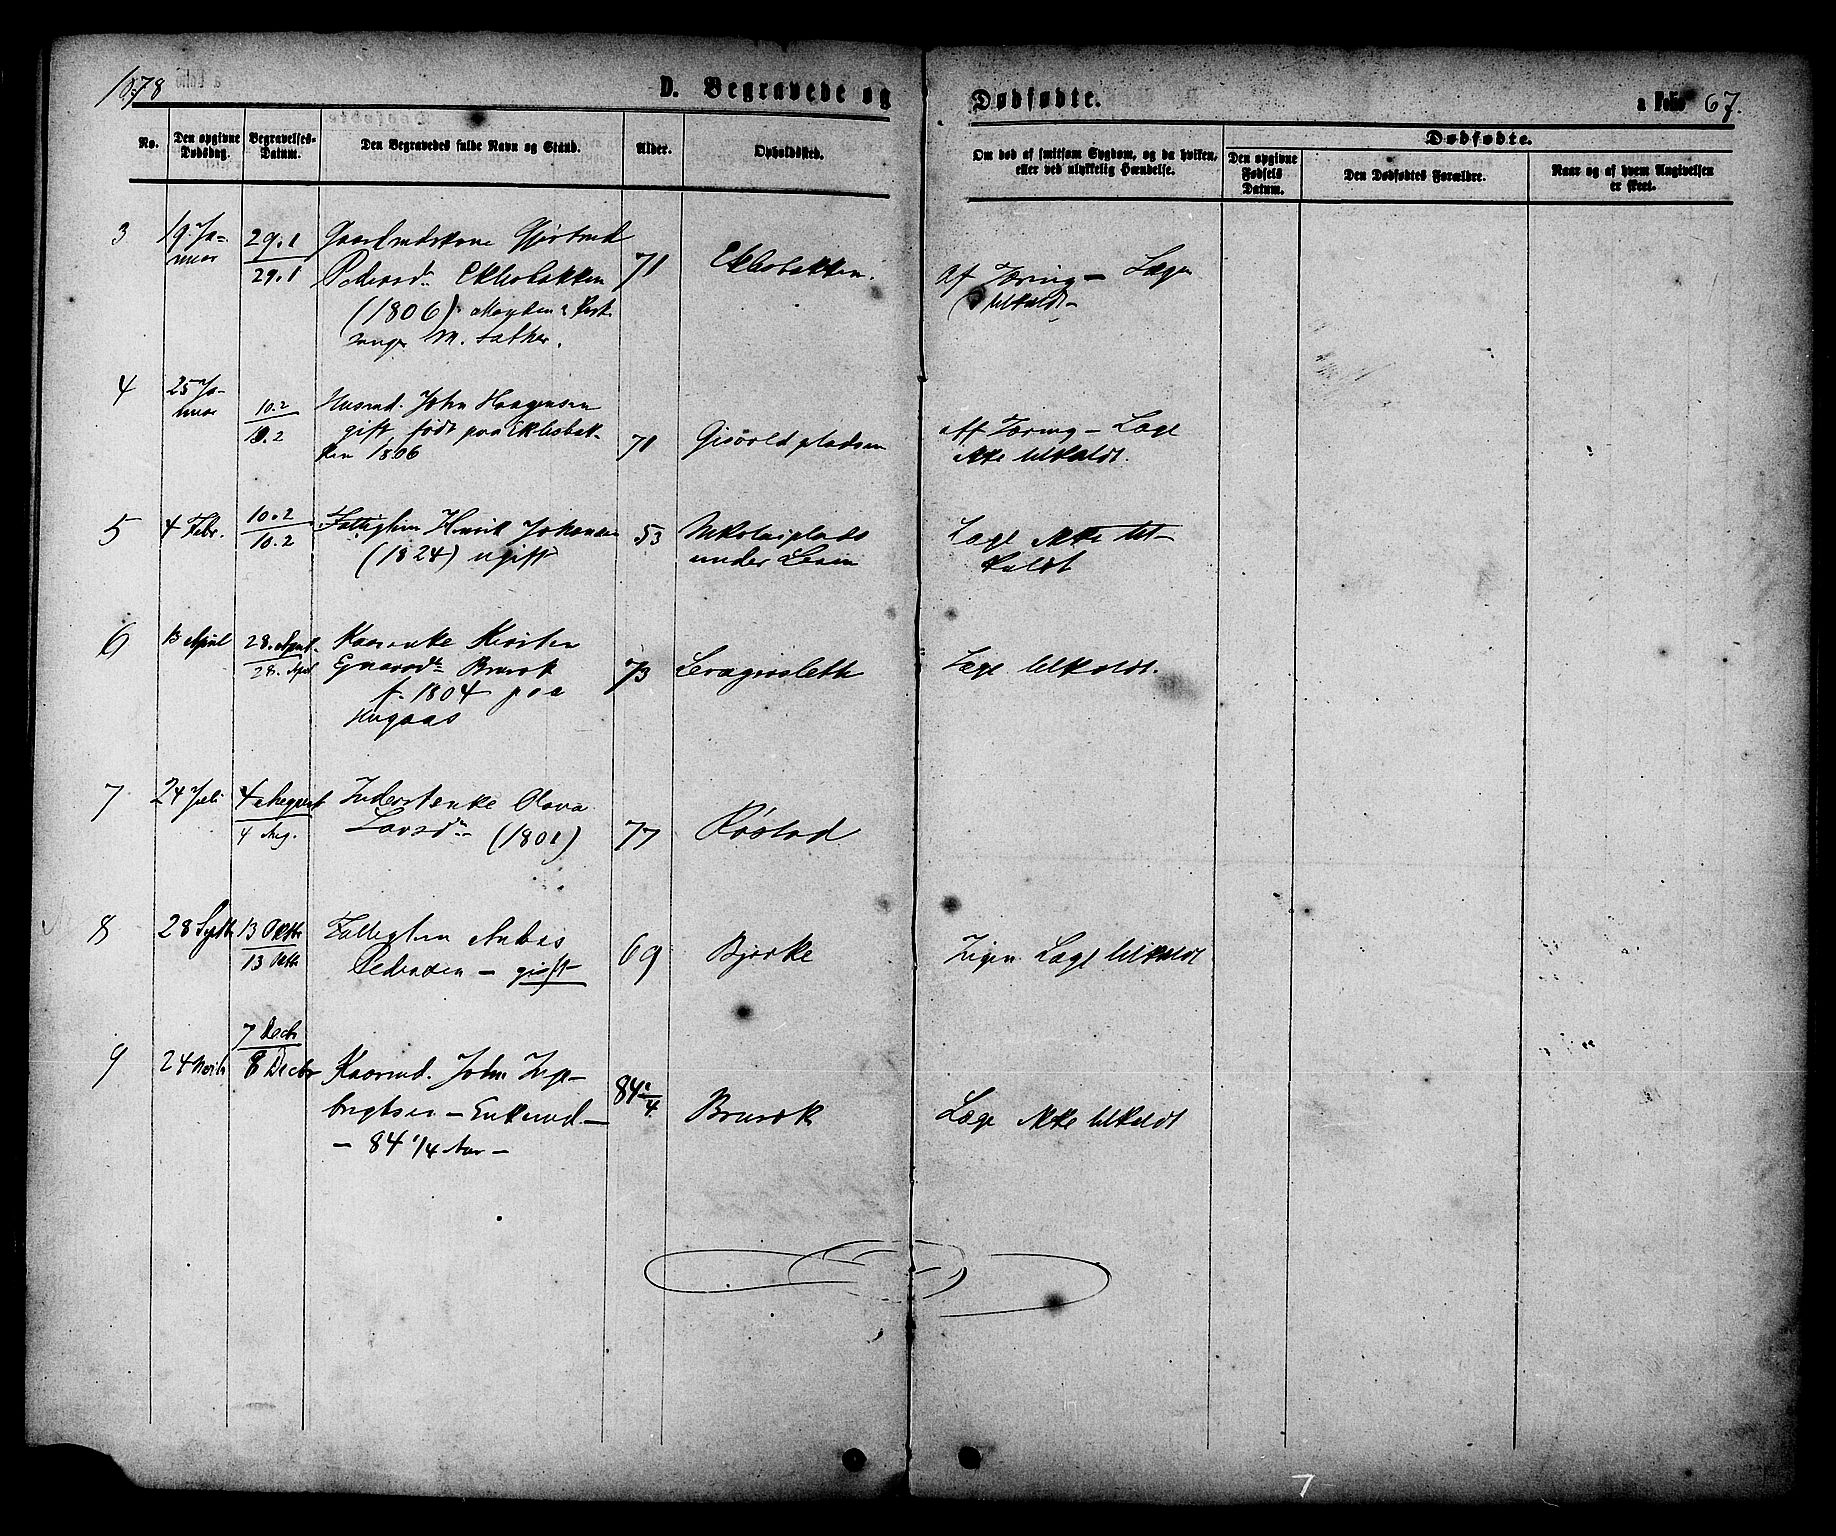 1878
D. Begravede og Dødfødte.
a Folio 67.
No.
Den opgivne Dødsdag.
Begravelses-Datum.
Den Begravedes fulde Navn og Stand.
Alder.
Opholdssted.
Om død af smitsom Sygdom, og da hvilken, eller ved ulykkelig Hændelse.
Dødfødte.
Den opgivne Fødsels Datum.
Den Dødfødtes Forældre.
Naar og af hvem Angivelsen er skeet.
3
19 Ja-
nuar
29.1
29.1
Gaardmdskone Gjertrud
Pedersdr. Eklesbakken
(1806)
71
Eklesbakken.
af Tæring - Læge
tilkaldt-
4
25 Ja-
nuar
10.2
10.2
Husmd. John Haagensen
gift født paa Eklesbak-
ken 1806
71
Gisvold pladsen
af Tæring - Læge
ikke tilkaldt.
5
4 Febr.
10.2
10.2
Fattiglem Henrik Johansen
(1824) ugift
53
Nikolaiplads
under
Læge ikke til-
kaldt
6
13 April
28. April
28. April
Kaarenke Kirsten
Brurok
f. 1804 paa
Hugaas
73
Læge tilkaldt.
7
24 Juli
4 August
4 Aug.
Inderstenke Olava
Larsdr. (1801)
77
Røstad
8
28 Septb
13 Oktbr
13 Oktb
Fattiglem
Pedersen - gift
69
Bjerke
Ingen Læge tilkaldt
9
24 Novbr
7 Decbr
8 Decbr
Kaarmd. John Inge-
brigtsen - Enkemd. -
- 84 1/4 Aar -
84 1/4
Brurok
Læge ikke tilkaldt
7